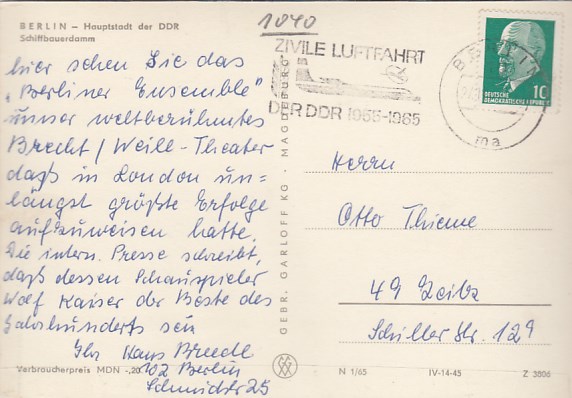 BERLIN – Hauptstadt der DDR
Schiffbauerdamm
hier sehen Sie das
„Berliner Ensemble"
unser weltberühmtes
Brecht / Weill-Theater
daß in London un=
längst größte Erfolge
aufzuweisen hatte.
Die intern. Presse schreibt,
daß dessen Schauspieler
Wolf Kaiser der Beste des
Jahrhunderts sei.
Ihr Hans
102 Berlin
Schmidstr 25
Verbraucherpreis MDN -,20
GEBR. GARLOFF KG · MAGDEBURG
1040
ZIVILE LUFTFAHRT
DER DDR 1955-1965
BERLIN
ma
10
DEUTSCHE
DEMOKRATISCHE REPUBLIK
Herrn
Otto Thieme
49 Zeitz
Schiller Str. 12
N 1/65 IV-14-45 Z 3806